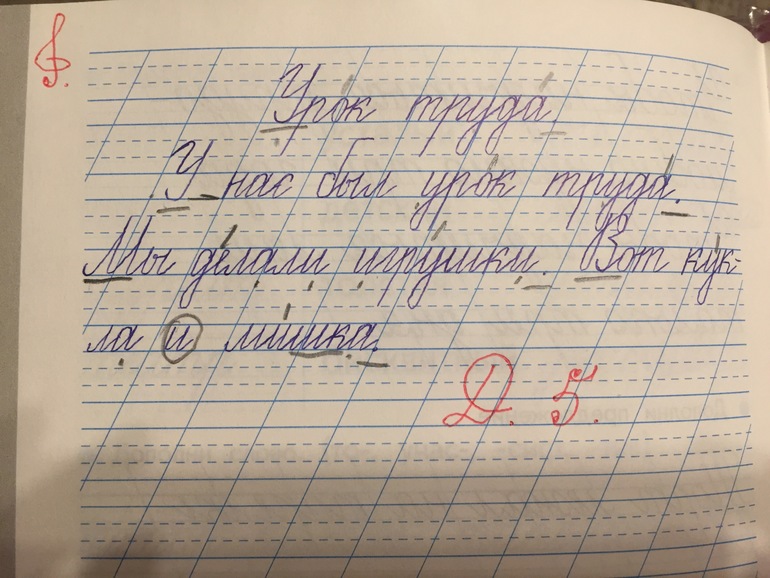 Урок труда.
У нас был урок труда.
Мы делали игрушки. Вот кук-
ла и мишка.
Д. 5.